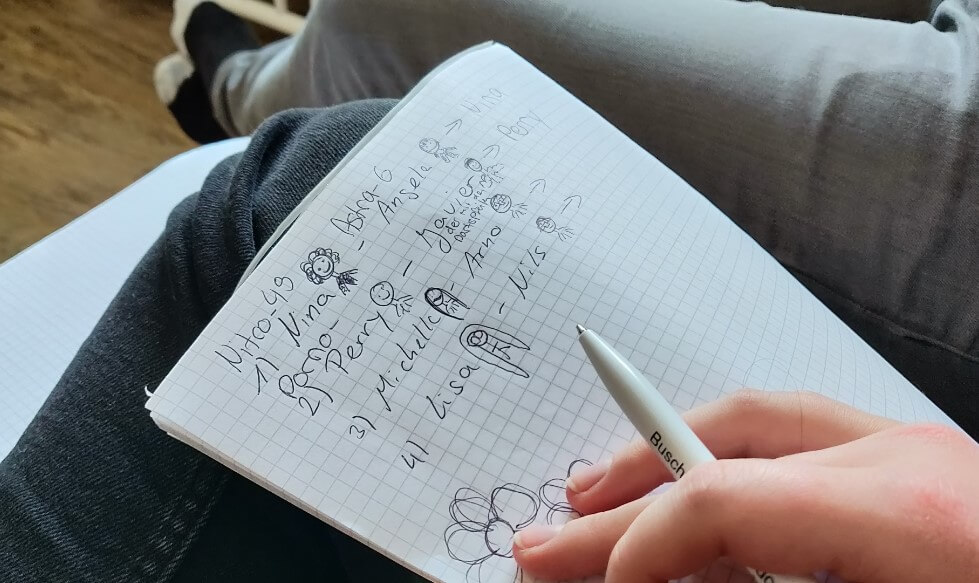 Nitro-49 Astra-6
1) Nina - Angela → Nina
Porno-
2) Perry - Javier → Perry
der
3) Michelle - Arno →
4) Lisa - Nils →
Busch